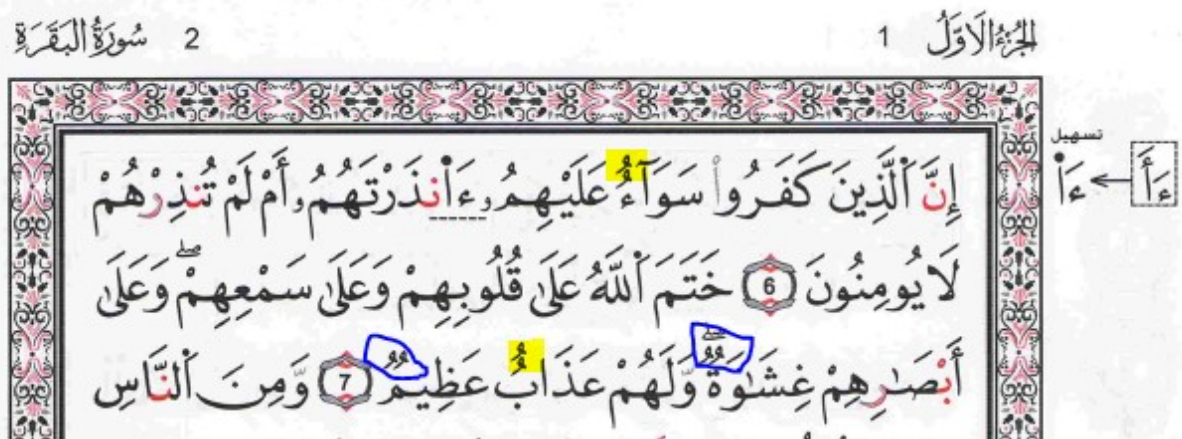 الجُزْءُ الَاوَّلُ 1
2 سُورَةُ البَقَرَةِ
تسهيل
ءَأَ ← ءَا۬
إِنَّ ٱلَّذِينَ كَفَرُوا۟ سَوَآءٌ عَلَيْهِمُۥٓ ءَا۬نذَرْتَهُمُۥٓ أَمْ لَمْ تُنذِرْهُمْ
لَا يُومِنُونَ 6 خَتَمَ ٱللَّهُ عَلَىٰ قُلُوبِهِمْ وَعَلَىٰ سَمْعِهِمْۖ وَعَلَىٰ
أَبْصَـٰرِهِمْ غِشَـٰوَةٌۖ وَّلَهُمْ عَذَابٌ عَظِيمٌ 7 وَّمِنَ ٱلنَّاسِ